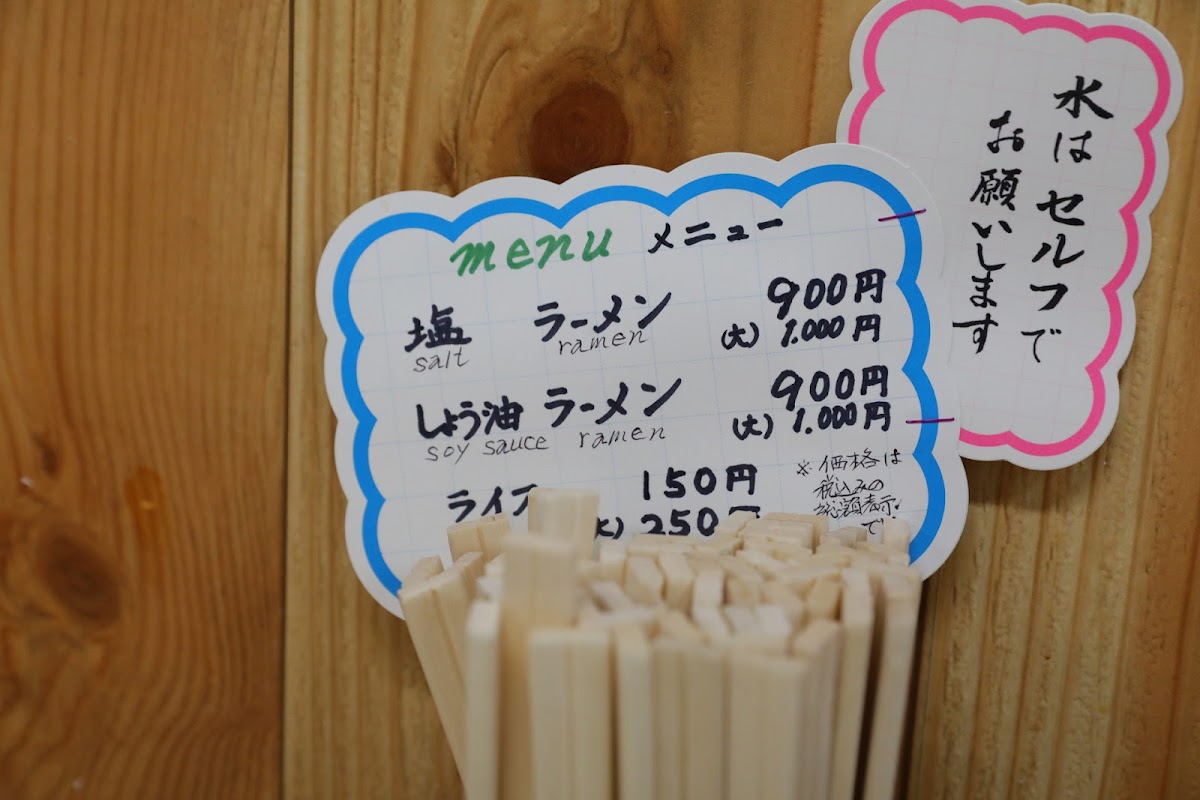 menu メニュー
塩 ラーメン 900円
salt ramen (大) 1.000円
しょう油 ラーメン 900円
soy sauce ramen (大) 1.000円
ライス 150円
大) 250円
※価格は
税込みの
総額表示
で
水は セルフで
お願いします